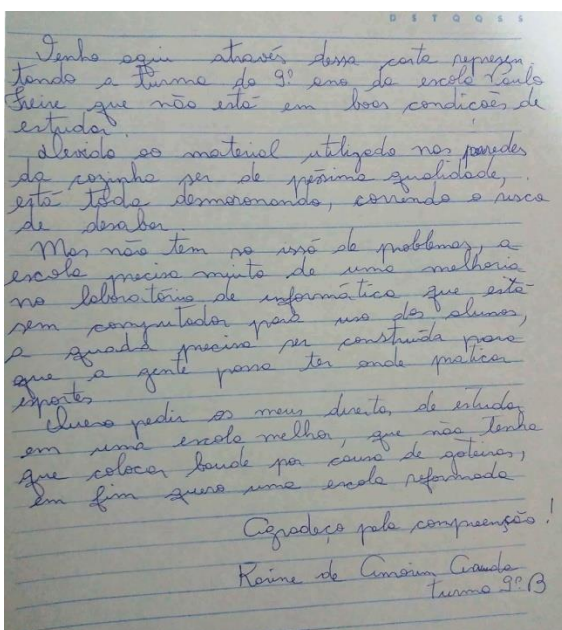 D S T Q Q S S
Venho aqui através dessa carta represen
tando a turma do 9º ano da escola Paulo
Freire que não está em boas condições de
estudar.
devido ao material utilizado nas paredes
da cozinha ser de péssima qualidade,
está toda desmoronando, correndo o risco
de desabar.
Mas não tem so isso de problemas, a
escola precisa muito de uma melhoria
no laboratório de informática que está
sem computador para uso dos alunos,
a quadra precisa ser construída para
que a gente possa ter onde praticar
esportes
Quero pedir os meus direitos, de estudar
em uma escola melhor, que não tenha
que colocar baude por causa de goteiras,
em fim quero uma escola reformada
Agradeço pela compreenção!
Karine de Amorim
turma 9º B